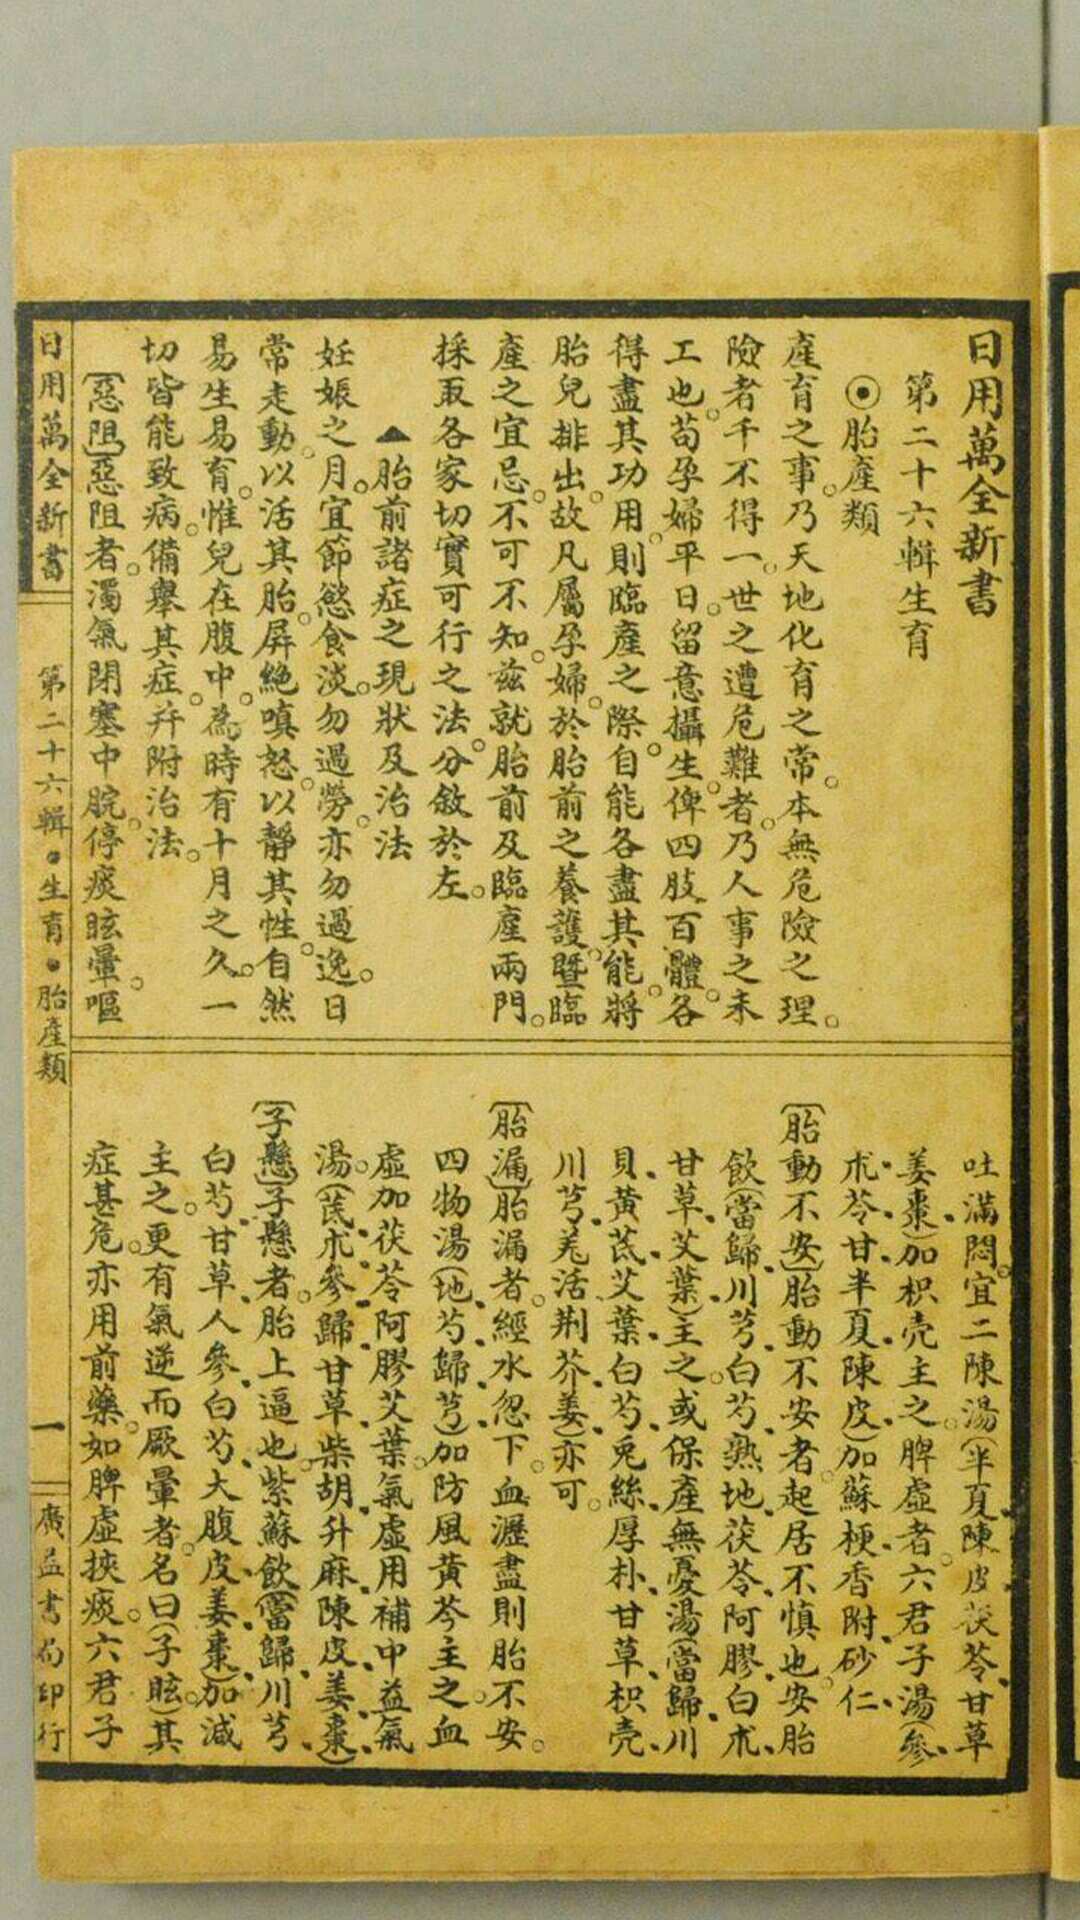 日用萬全新書
第二十六輯生育
⦿胎產類
產育之事。乃天地化育之常。本無危險之理。
險者千不得一。世之遭危難者。乃人事之未
工也。苟孕婦平日。留意攝生。俾四肢百體。各
得盡其功用。則臨產之際。自能各盡其能。將
胎兒排出。故凡屬孕婦。於胎前之養護。暨臨
產之宜忌。不可不知。茲就胎前及臨產兩門。
採取各家切實可行之法。分敘於左。
▲胎前諸症之現狀及治法
妊娠之月。宜節慾食淡。勿過勞。亦勿過逸。日
常走動。以活其胎。屏絕嗔怒。以靜其性。自然
易生易育。惟兒在腹中。為時有十月之久。一
切皆能致病。備舉其症。幷附治法。
〔惡阻〕惡阻者。濁氣閉塞中脘。停痰眩暈。嘔
吐滿悶。宜二陳湯(半夏、陳皮、茯苓、甘草
姜棗)加枳壳主之。脾虛者。六君子湯(參、
朮、苓、甘、半夏、陳皮)加蘇梗、香附、砂仁、
〔胎動不安〕胎動不安者。起居不慎也。安胎
飲(當歸、川芎、白芍、熟地、茯苓、阿膠、白朮、
甘草、艾葉)主之。或保產無憂湯(當歸、川
貝、黃芪、艾葉、白芍、兎絲、厚朴、甘草、枳壳、
川芎、羌活、荆芥、姜)亦可。
〔胎漏〕胎漏者。經水忽下。血瀝盡則胎不安。
四物湯(地、芍、歸、芎)加防風黃芩主之。血
虛加茯苓、阿膠、艾葉。氣虛用補中益氣
湯。(芪、朮、參、歸、甘草、柴胡、升麻、陳皮、姜、棗)
〔子懸〕子懸者。胎上逼也。紫蘇飲(當歸、川芎、
白芍、甘草、人參、白芍、大腹皮、姜、棗)加減
主之。更有氣逆而厥暈者。名曰(子眩)其
症甚危。亦用前藥。如脾虛挾痰。六君子
日用萬全新書
第二十六輯•生育•胎產類
一
廣益書局印行